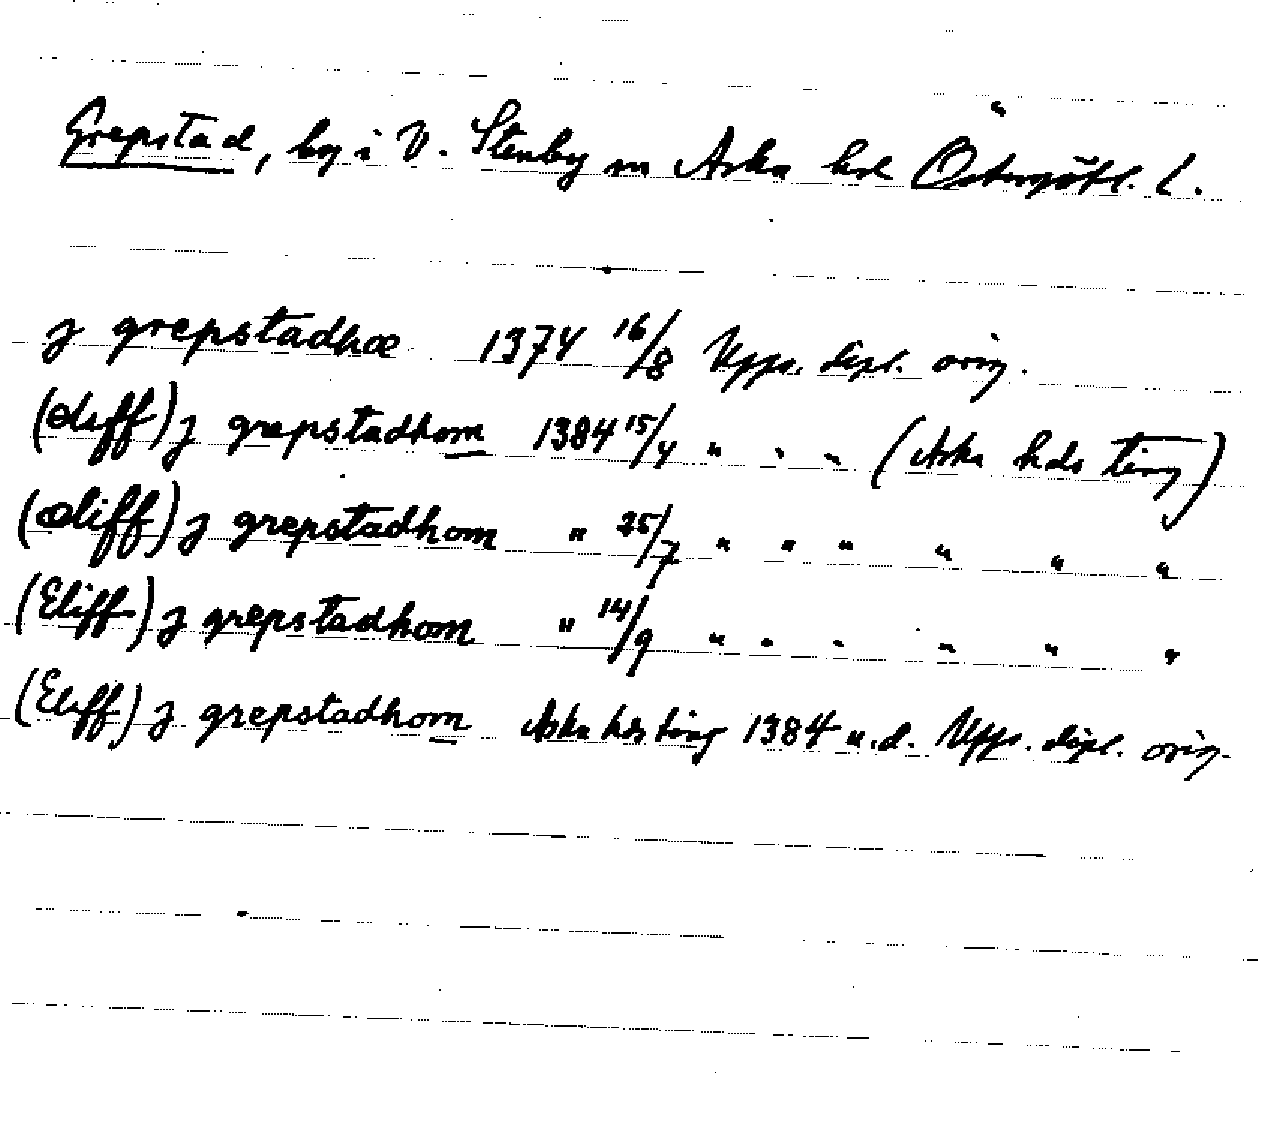 Grepstad, by i V. Stenby sn Aska hd Östergötl. L.
j grepstadhæ 1374 16/8 Upps. dipl. orig.
(æliff) j grepstadhom 1384 15/4 " " " (Aska hds ting)
(æliff) j grepstadhom " 25/7 " " " " " "
(Eliff) j grepstadhom " 14/9 " " " " " "
(Eliff) j grepstadhom Aska hds ting 1384 u.d. Upps. dipl. orig.